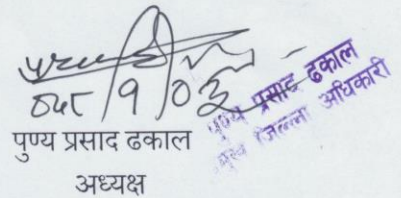 पुण्य प्रसाद ढकाल
अध्यक्ष
पुण्य प्रसाद ढकाल
प्रमुख जिल्ला अधिकारी